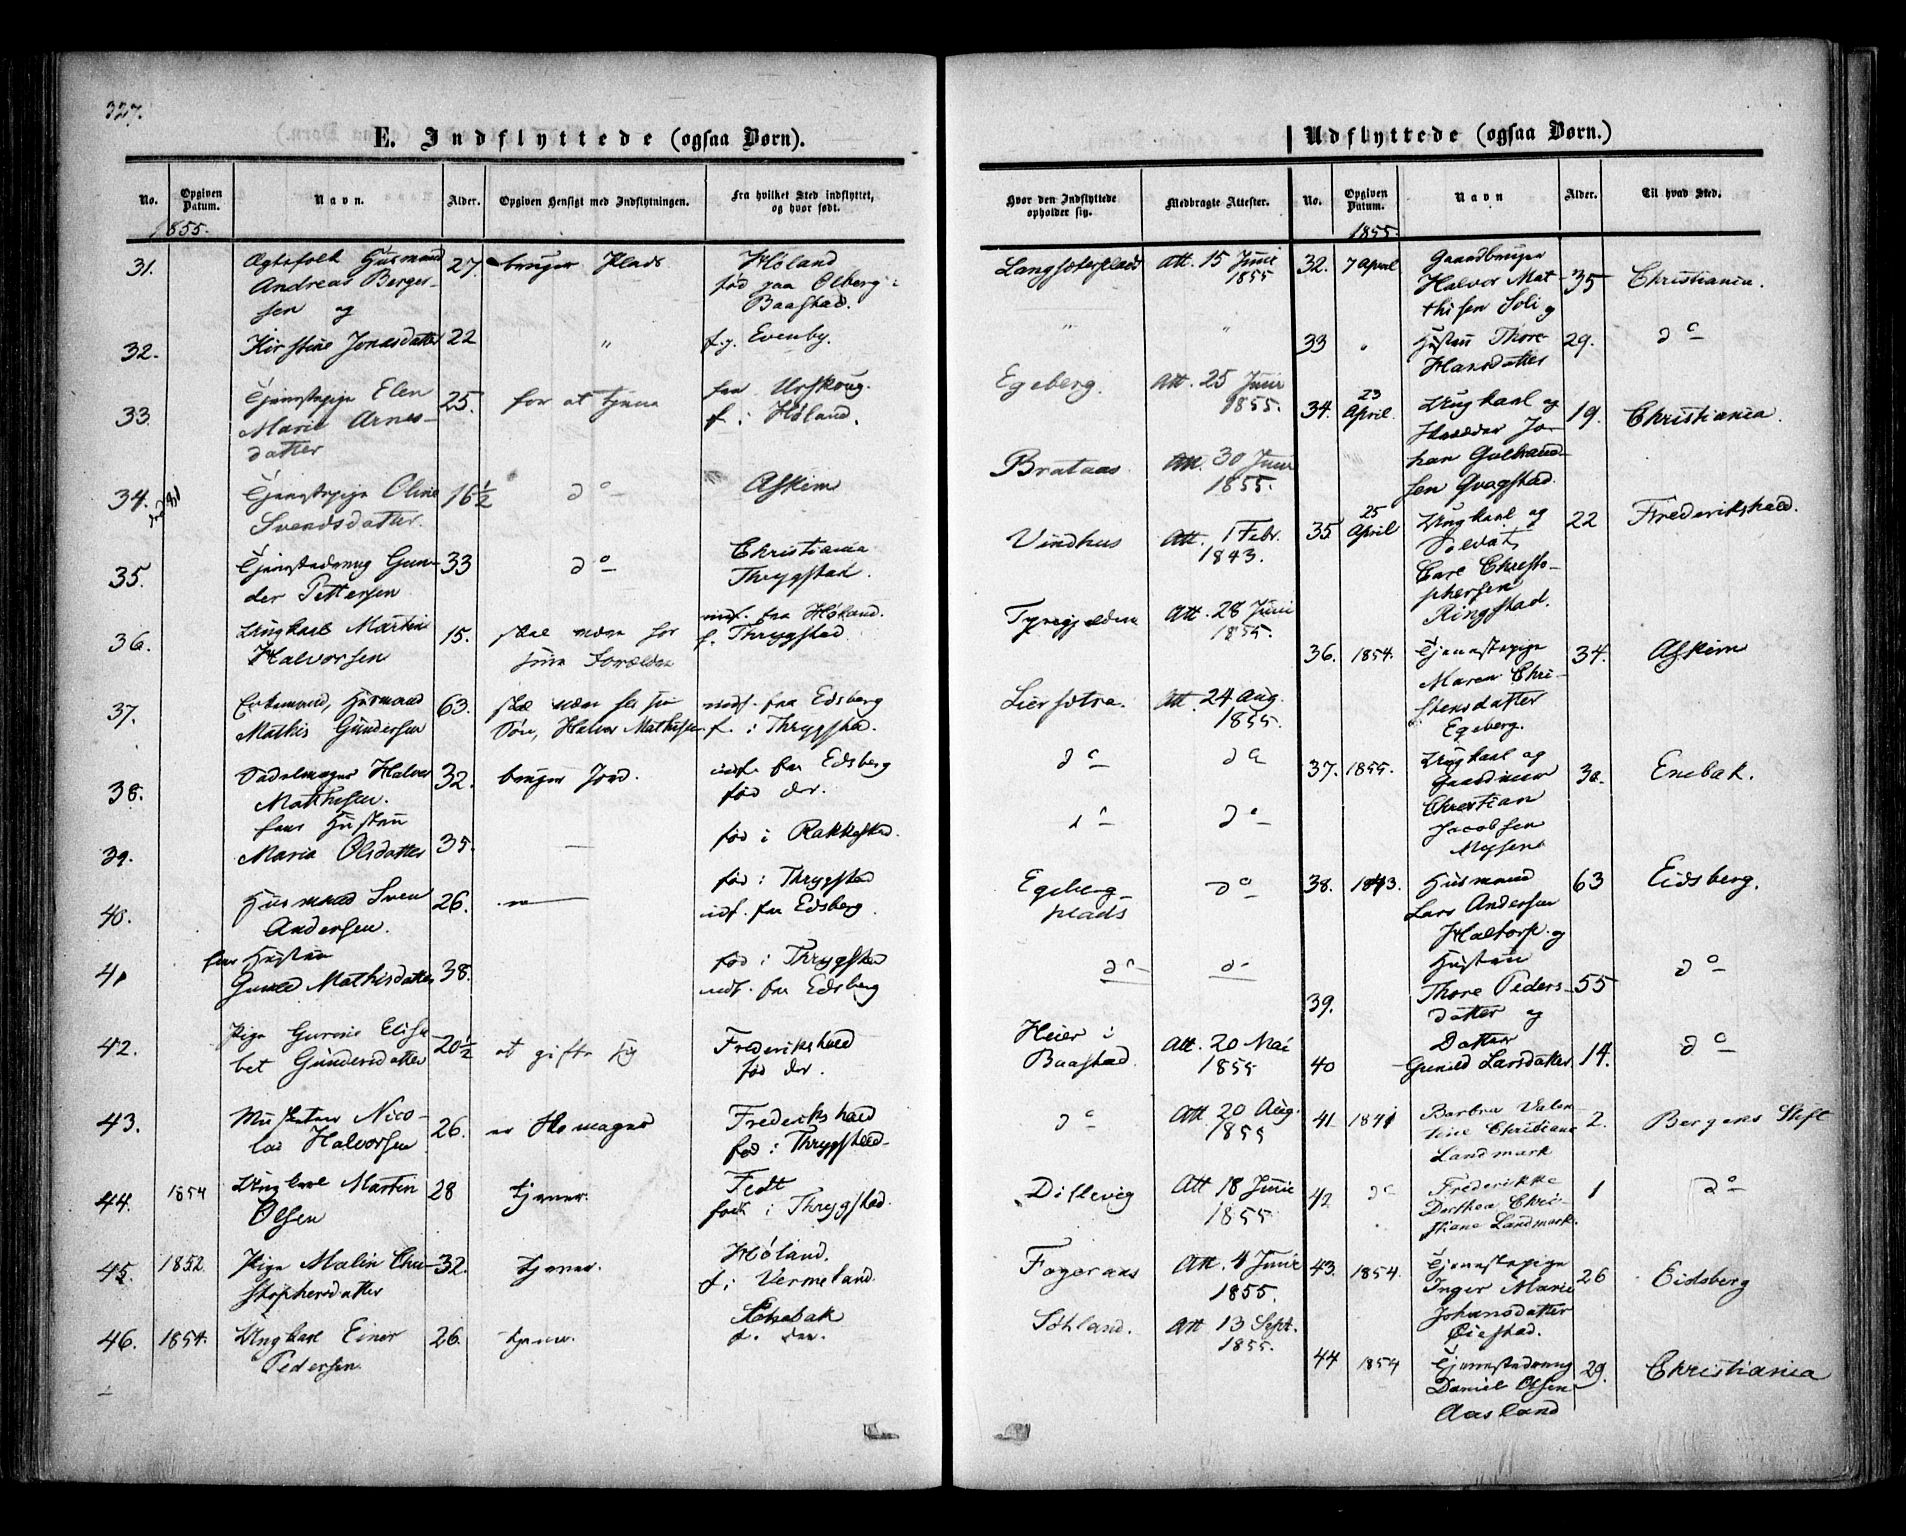 327.
E. Indflyttede (ogsaa Børn).
No.
Opgiven Datum.
Navn.
Alder.
Opgiven Hensigt med Indflytningen.
Fra hvilket Sted indflyttet, og hvor født.
1855.
31.
Ægtefolk Husmand
27.
bruger Plads
Høland
Andreas Berger-
fød paa Olberg
sen og
Baastad.
32.
Kirstine Jonasdatter
22
"
f. p. Evenby.
33
Tjenestepige Elen
25.
for at tjene
fra Urskoug.
Marie Arnes-
f. i Høland.
datter
34.
Tjenestepige Oline
16½
do
Askim
Svendsdatter.
35.
Tjenestedreng Gun-
33
do
Christiania
der Pettersen
Thrygstad.
36.
Ungkarl Martin
15.
skal være hos
indf. fra Høland.
Halvorsen
sine Forældre
f. Thrygstad
37.
Enkemand, Husmand
63.
skal være hos sin
indf. fra Edsberg
Mathis Gundersen
Søn, Halvor Mathisen
f. i Thrygstad.
38.
Sadelmager Halvor
32.
bruger Jord.
indf. fra Edsberg
Mathisen.
fød der.
hans Hustru
39.
Maria Olsdatter
35.
—
fød i Rakkestad.
40.
Husmand Sven
26.
fød i Thrygstad
Andersen.
indf. fra Edsberg.
41
hans Hustru
fød i Thrygstad
Gunild Mathisdatter
38.
indf. fra Edsberg
42.
Pige Gurine Elisa-
20½
at gifte sig
Frederikshald
bet Gundersdatter
fød der.
43.
Musketer Nico-
26.
er Skomager
Frederikshald
lai Halvorsen
fød i Thrygstad
44.
1854
Ungkarl Martin
28
tjener.
Fedt
Olsen
født i Thrygstad.
45.
1852
Pige Malin Chri-
32.
tjener.
Høland.
stophersdatter
f. i Vermeland.
46.
1854.
Ungkarl Einer
26.
tjener.
f. der.
Pedersen
Udflyttede (ogsaa Børn.)
Hvor den Indflyttede opholder sig.
Medbragte Attester.
No.
Opgiven Datum.
Navn
Alder.
Til hvad Sted.
1855.
Langsæterplads
Att. 15 Juni
1855
"
"
Egeberg.
Att. 25 Juni
1855.
Brataas.
Att. 30 Juni
1855.
Vindhus
Att. 1 Febr.
1843.
Att. 28 Juni
1855.
Liersætra.
Att. 24 Aug.
1855.
do
do
do
do
Egeberg-
plads
do
do
do
Heier i
Baastad.
Att. 20 Mai
1855
do
Att. 20 Aug.
1855
Dillevig
Att 18 Juni
1855
Fageraas
Att. 4 Juni
1855.
Sohland.
Att 13 Sept.
1855.
32.
7 April
Gaardbruger
Halvor Mat
thisen Soli og
35
Christiania.
33
"
Hustru Thore
Hansdatter
29.
do
34.
23 April
Ungkarl og
Skrædder Jo-
han Gulbrand-
sen Qvagstad.
19.
Christiania.
35
25 April
Ungkarl og
Soldat,
Carl Christo-
phersen
Ringstad.
22
Frederikshald.
36.
1854.
Tjenestepige
Maren Chri-
stensdatter
Egeberg.
34.
Askim
37.
1855.
Ungkarl og
Christian
Jacobsen
Mysen
30.
Enebak.
38.
1843.
Husmand
Lars Andersen
Haltorp. og
63
Eidsberg.
39.
Hustru
Thore Peders-
datter og
55
do
40
Datter
Gunild Larsdatter
14.
do
41
1841
Barbra Valen
tine Christiane
Landmark
2.
Bergens Stift
42
do
Frederikke
Dorthea Chri-
stiane Landmark.
1
do
43.
1854.
Tjenestepige
Inger Marie
Johansdatter
Øiestad.
26
Eidsberg
44
1854
Tjenestedreng
Daniel Olsen
Aasland
29.
Christiania